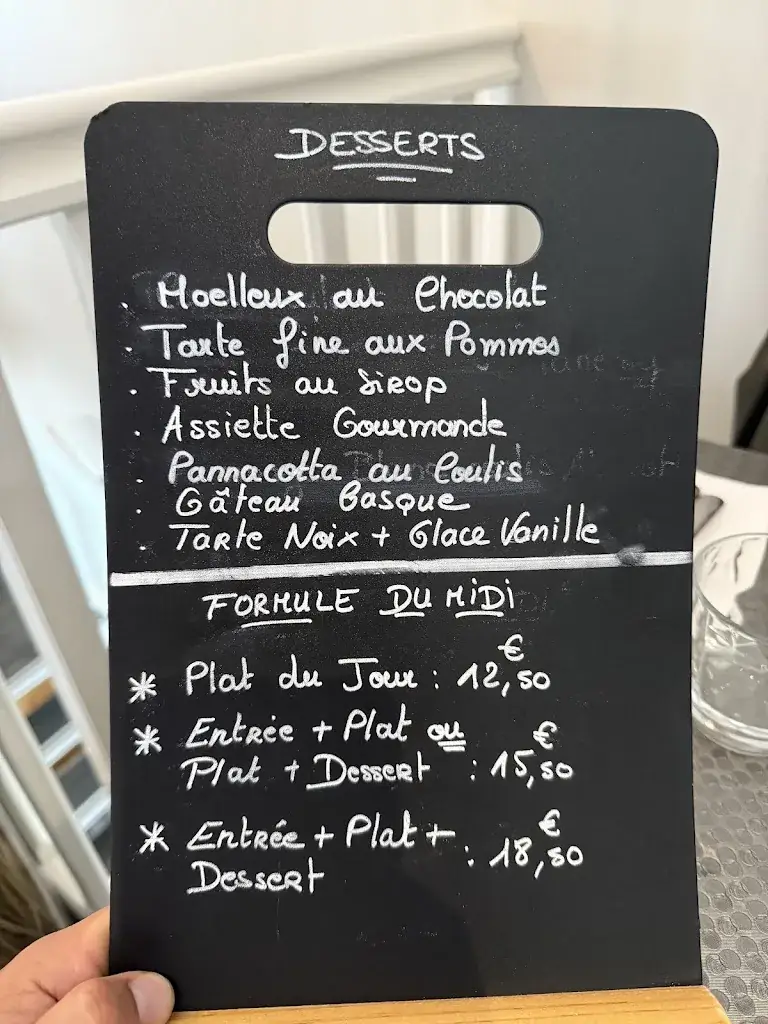 DESSERTS
. Moelleux au Chocolat
. Tarte fine aux Pommes
. Fruits au Sirop
. Assiette Gourmande
. Pannacotta au Coulis
. Gâteau Basque
. Tarte Noix + Glace Vanille
FORMULE DU MIDI
* Plat du Jour : 12,50 €
* Entrée + Plat ou
Plat + Dessert : 15,50 €
* Entrée + Plat + : 18,50 €
Dessert